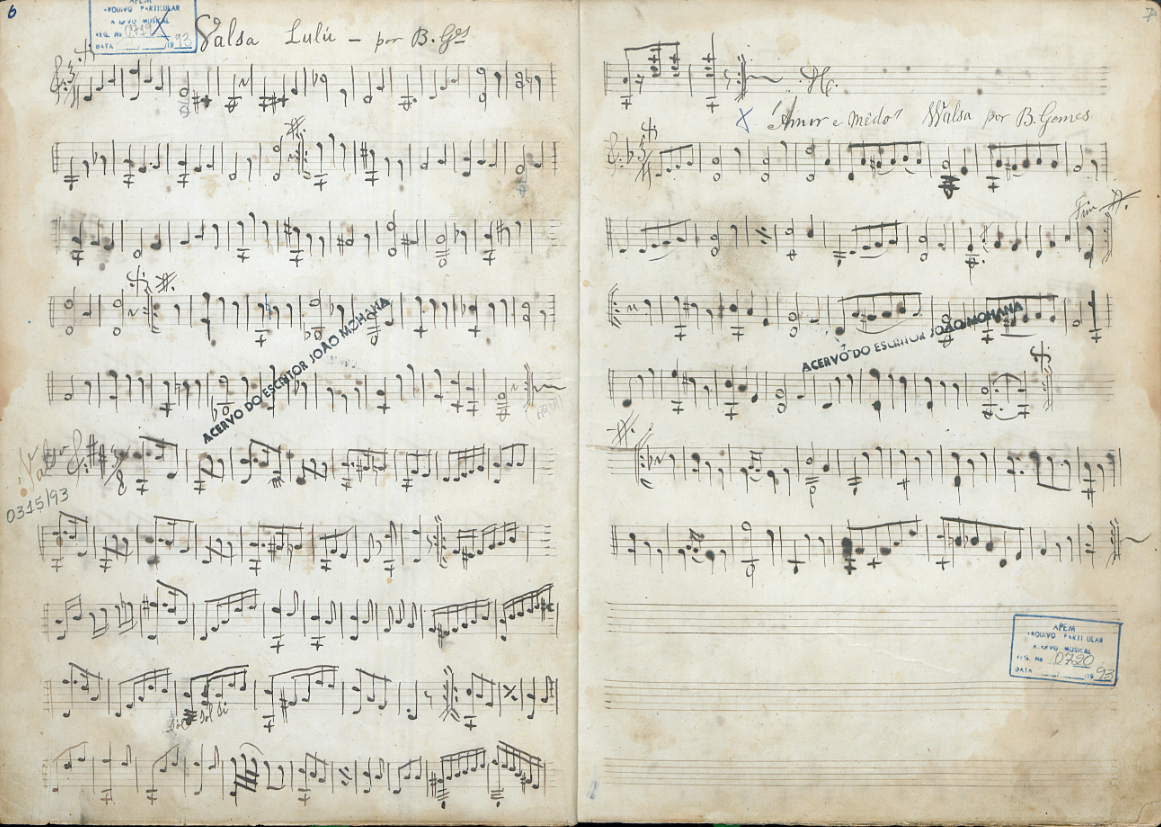 6
APEM
ARQUIVO PARTICULAR
ACERVO MUSICAL
REG. Nº 0719
DATA / /19 93
Valsa Lulú – por B. Gᵉˢ
ACERVO DO ESCRITOR JOÃO MOHANA
Valsa
0315/93
Sol Si
7
D.C.
"Amor e mêdo" Walsa por B. Gomes
Fim
ACERVO DO ESCRITOR JOÃO MOHANA
APEM
ARQUIVO PARTICULAR
ACERVO MUSICAL
REG. Nº 0720
DATA / /19 93